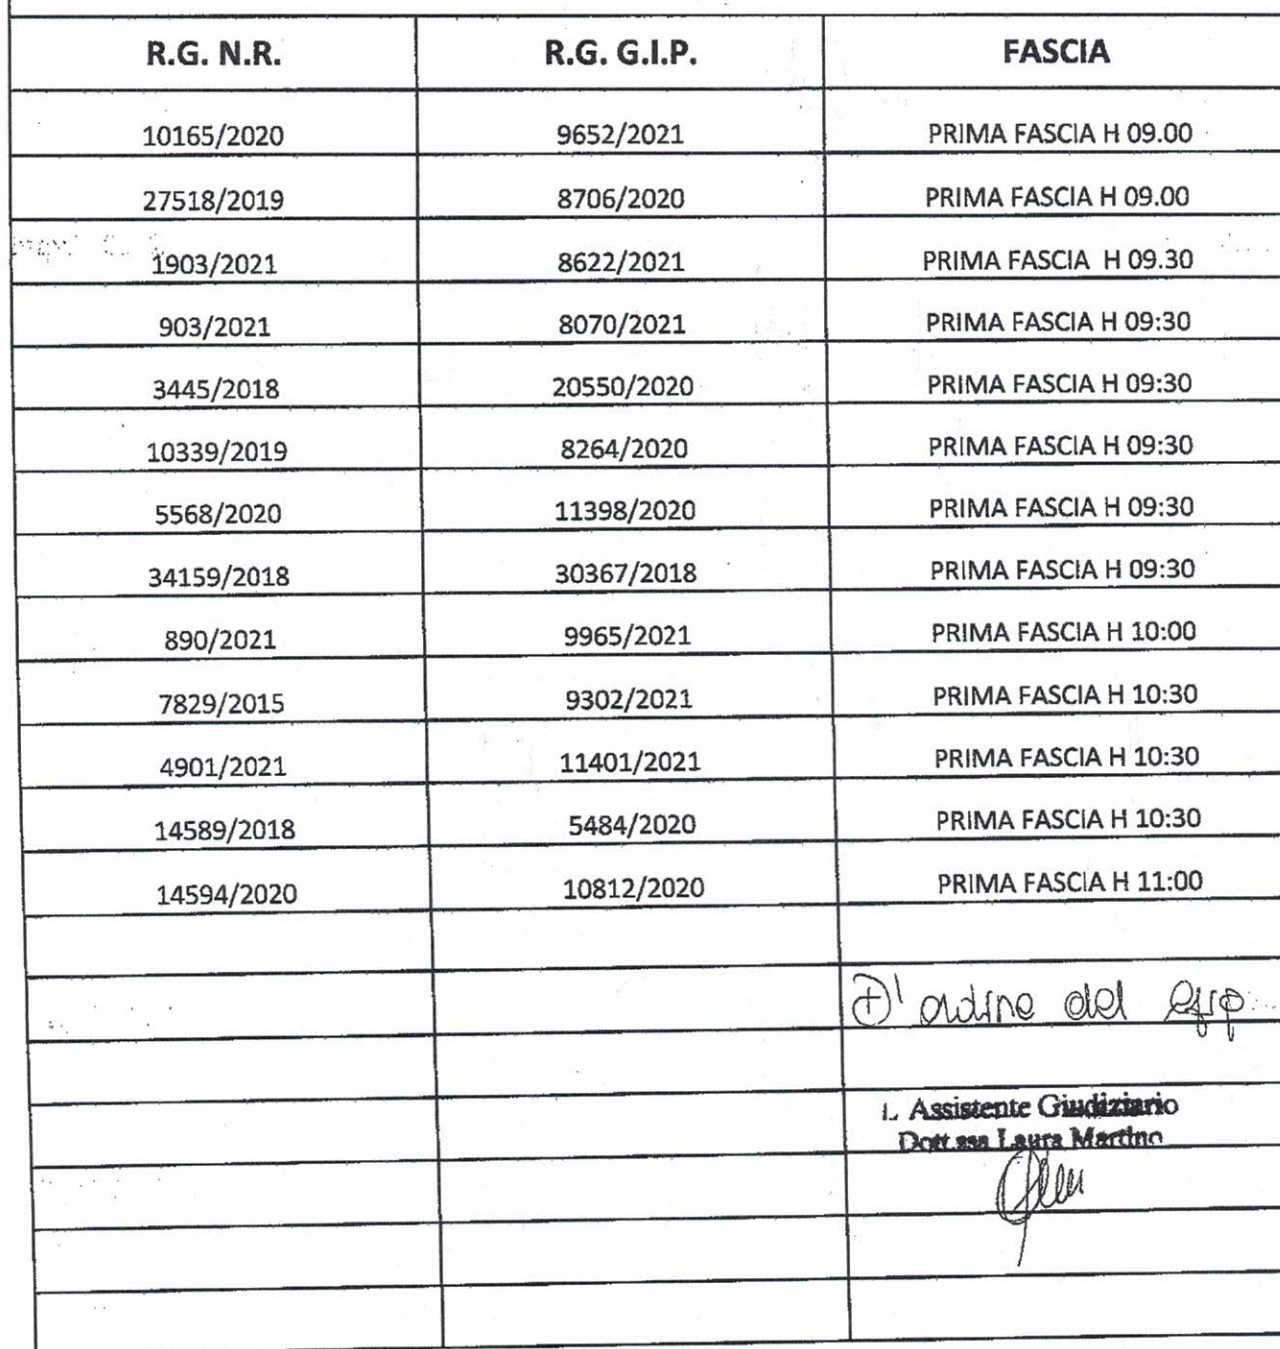 R.G. N.R. R.G. G.I.P. FASCIA
10165/2020 9652/2021 PRIMA FASCIA H 09.00
27518/2019 8706/2020 PRIMA FASCIA H 09.00
1903/2021 8622/2021 PRIMA FASCIA H 09.30
903/2021 8070/2021 PRIMA FASCIA H 09:30
3445/2018 20550/2020 PRIMA FASCIA H 09:30
10339/2019 8264/2020 PRIMA FASCIA H 09:30
5568/2020 11398/2020 PRIMA FASCIA H 09:30
34159/2018 30367/2018 PRIMA FASCIA H 09:30
890/2021 9965/2021 PRIMA FASCIA H 10:00
7829/2015 9302/2021 PRIMA FASCIA H 10:30
4901/2021 11401/2021 PRIMA FASCIA H 10:30
14589/2018 5484/2020 PRIMA FASCIA H 10:30
14594/2020 10812/2020 PRIMA FASCIA H 11:00
D' ordine del
L Assistente Giudiziario
Dott.ssa Laura Martino